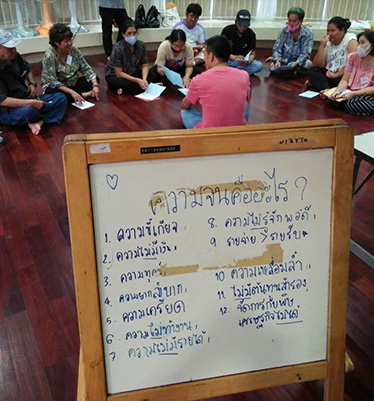 ความจนคืออะไร?
1. ความขี้เกียจ
2. ความไม่มีเงิน
3. ความทุกข์
4. ความยากลำบาก
5. ความเครียด
6 ความไม่ทำงาน
7 ความไม่มีรายได้
8. ความไม่รู้จักพอดี
9 รายจ่าย > รายรับ
10 ความเหลื่อมล้ำ
11 ไม่มีต้นทุนสำรอง
12 จัดการกับพิษเศรษฐกิจไม่ได้